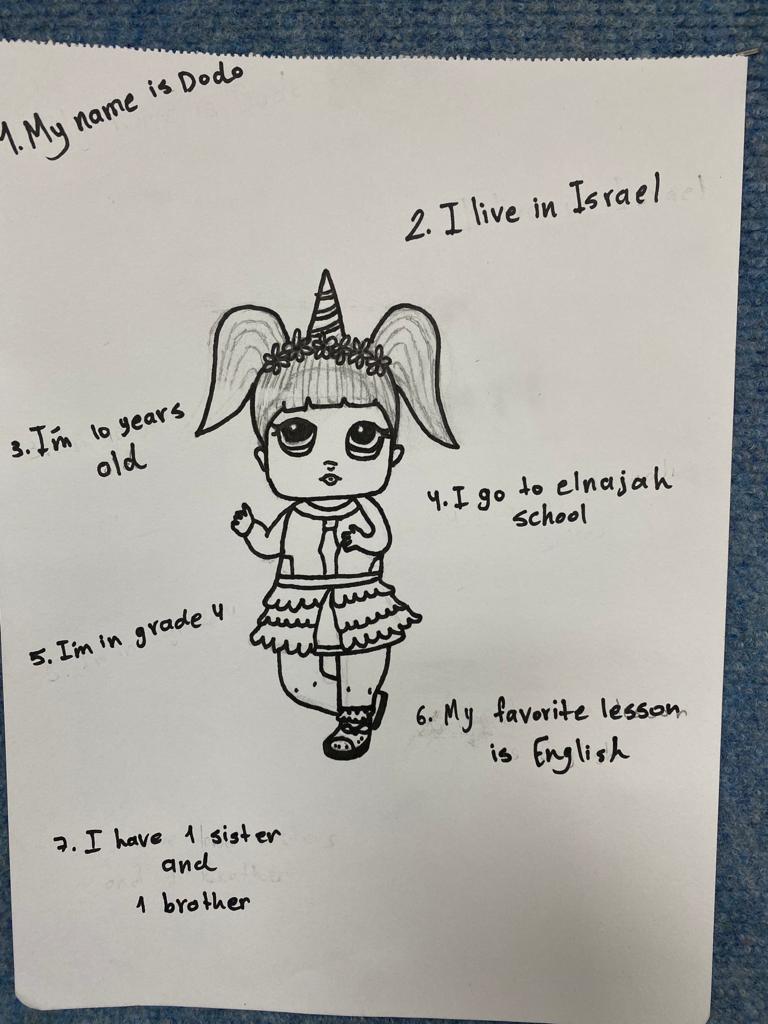 1. My name is Dodo
2. I live in Israel
3. I'm 10 years
old
4. I go to elnajah
school
5. I'm in grade 4
6. My favorite lesson
is English
7. I have 1 sister
and
1 brother